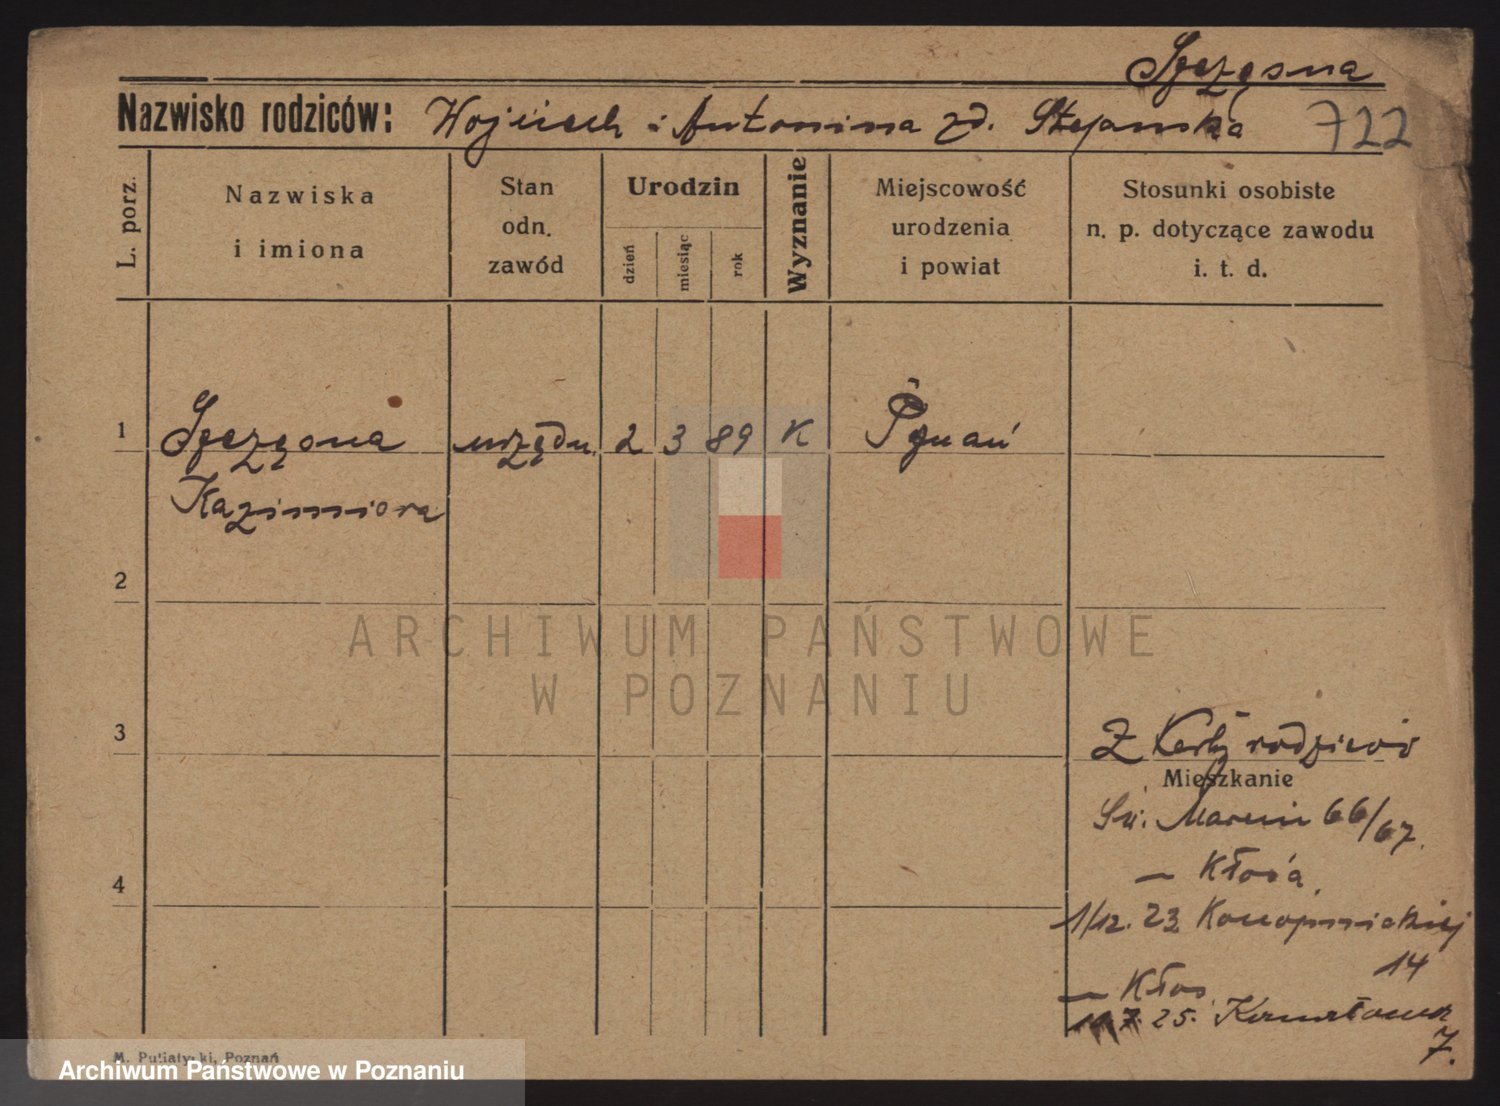 Szczęsna
Nazwisko rodziców: Wojciech i Antonina zd. Stefańska 722
L. porz.
Nazwiska
i imiona
Stan
odn.
zawód
Urodzin
dzień
miesiąc
rok
Wyznanie
Miejscowość
urodzenia
i powiat
Stosunki osobiste
n. p. dotyczące zawodu
i. t. d.
1 Szczęsna urzędn. 2 3 89 K Pznań
Kazimiera
2
ARCHIWUM PAŃSTWOWE
W POZNANIU
3
Z Karty rodziców
Mieszkanie
Św. Marcin 66/67.
4
1/12. 23 Konopnickiej
14
7. 25.
7.
M. Putiatycki, Poznań
Archiwum Państwowe w Poznaniu